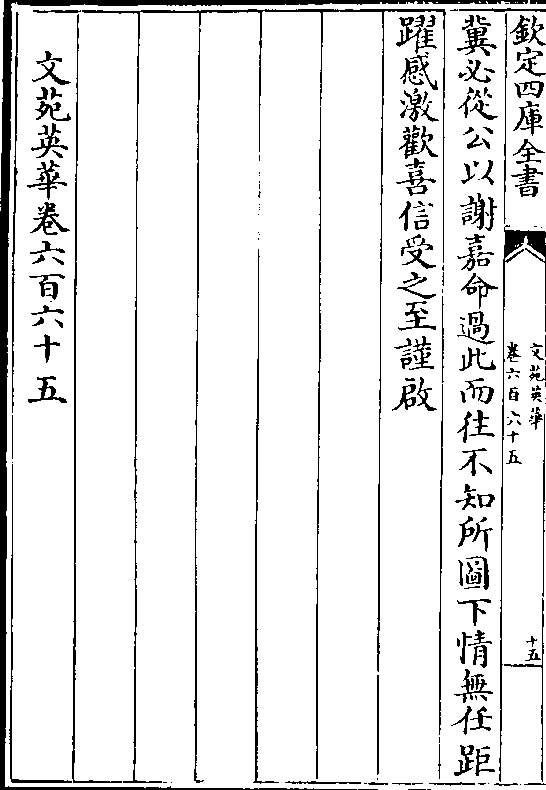 欽定四庫全書
文苑英華
卷六百六十五
十五
冀必從公以謝嘉命過此而往不知所圖下情無任距
躍感激歡喜信受之至謹啟
文苑英華卷六百六十五